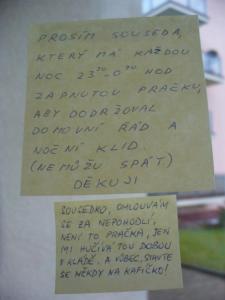 PROSÍM SOUSEDA,
KTERÝ MÁ KAŽDOU
NOC 23³⁰-0³⁰ HOD
ZAPNUTOU PRAČKU,
ABY DODRŽOVAL
DOMOVNÍ ŘÁD A
NOČNÍ KLID.
(NEMŮŽU SPÁT)
DĚKUJI
SOUSEDKO, OMLOUVÁM
SE ZA NEPOHODLÍ,
NENÍ TO PRAČKA, JEN
MI HUČÍVÁ TOU DOBOU
V KLÁDĚ. A VŮBEC, STAVTE
SE NĚKDY NA KAFÍČKO!